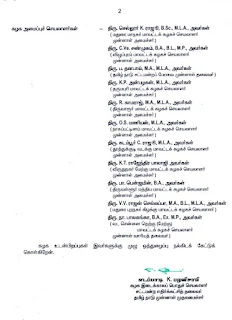 2
கழக அமைப்புச் செயலாளர்கள் - திரு. செல்லூர் K. ராஜூ, B.Sc., M.L.A., அவர்கள்
(மதுரை மாநகர் மாவட்டக் கழகச் செயலாளர்
முன்னாள் அமைச்சர்)
திரு. C.Ve. சண்முகம், B.A., B.L., M.P., அவர்கள்
(விழுப்புரம் மாவட்டக் கழகச் செயலாளர்
முன்னாள் அமைச்சர்)
திரு. ப. தனபால், M.A., M.L.A., அவர்கள்
(தமிழ் நாடு சட்டமன்றப் பேரவை முன்னாள் தலைவர்)
திரு. K.P. அன்பழகன், M.L.A., அவர்கள்
(தருமபுரி மாவட்டக் கழகச் செயலாளர்
முன்னாள் அமைச்சர்)
திரு. R. காமராஜ், M.A., M.L.A., அவர்கள்
(திருவாரூர் மாவட்டக் கழகச் செயலாளர்
முன்னாள் அமைச்சர்)
திரு. O.S. மணியன், M.L.A., அவர்கள்
(நாகப்பட்டினம் மாவட்டக் கழகச் செயலாளர்
முன்னாள் அமைச்சர்)
திரு. கடம்பூர் C. ராஜூ, M.L.A., அவர்கள்
(தூத்துக்குடி வடக்கு மாவட்டக் கழகச் செயலாளர்
முன்னாள் அமைச்சர்)
திரு. K.T. ராஜேந்திர பாலாஜி அவர்கள்
(விருதுநகர் மேற்கு மாவட்டக் கழகச் செயலாளர்
முன்னாள் அமைச்சர்)
திரு. பா. பென்ஜமின், B.A., அவர்கள்
(திருவள்ளூர் மத்திய மாவட்டக் கழகச் செயலாளர்
முன்னாள் அமைச்சர்)
திரு. V.V. ராஜன் செல்லப்பா, M.A., B.L., M.L.A., அவர்கள்
(மதுரை புறநகர் கிழக்கு மாவட்டக் கழகச் செயலாளர்)
திரு. நா. பாலகங்கா, B.A., Ex. M.P., அவர்கள்
(வட சென்னை தெற்கு (மேற்கு)
மாவட்டக் கழகச் செயலாளர்
முன்னாள் வாரியத் தலைவர்)
கழக உடன்பிறப்புகள் இவர்களுக்கு முழு ஒத்துழைப்பு நல்கிடக் கேட்டுக்
கொள்கிறேன்.
எடப்பாடி K. பழனிசாமி
கழக இடைக்காலப் பொதுச் செயலாளர்
சட்டமன்ற எதிர்க்கட்சித் தலைவர்
தமிழ் நாடு முன்னாள் முதலமைச்சர்